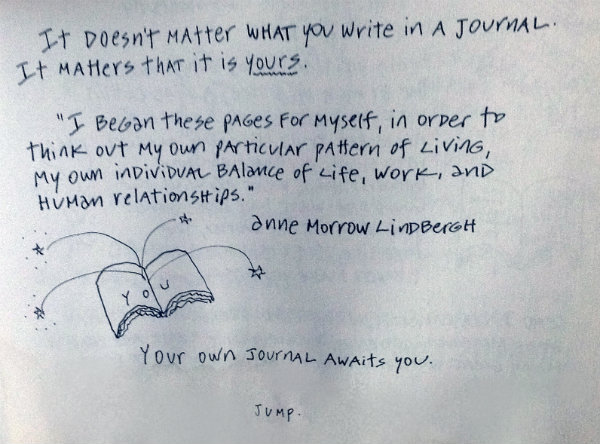 It Doesn't Matter WHAT you write in A Journal.
It Matters that it is yours.
"I Began these pages for myself, in order to
think out my own particular pattern of living,
my own individual balance of life, work, and
human relationships."
anne Morrow Lindbergh
YOU
Your own journal awaits you.
Jump.